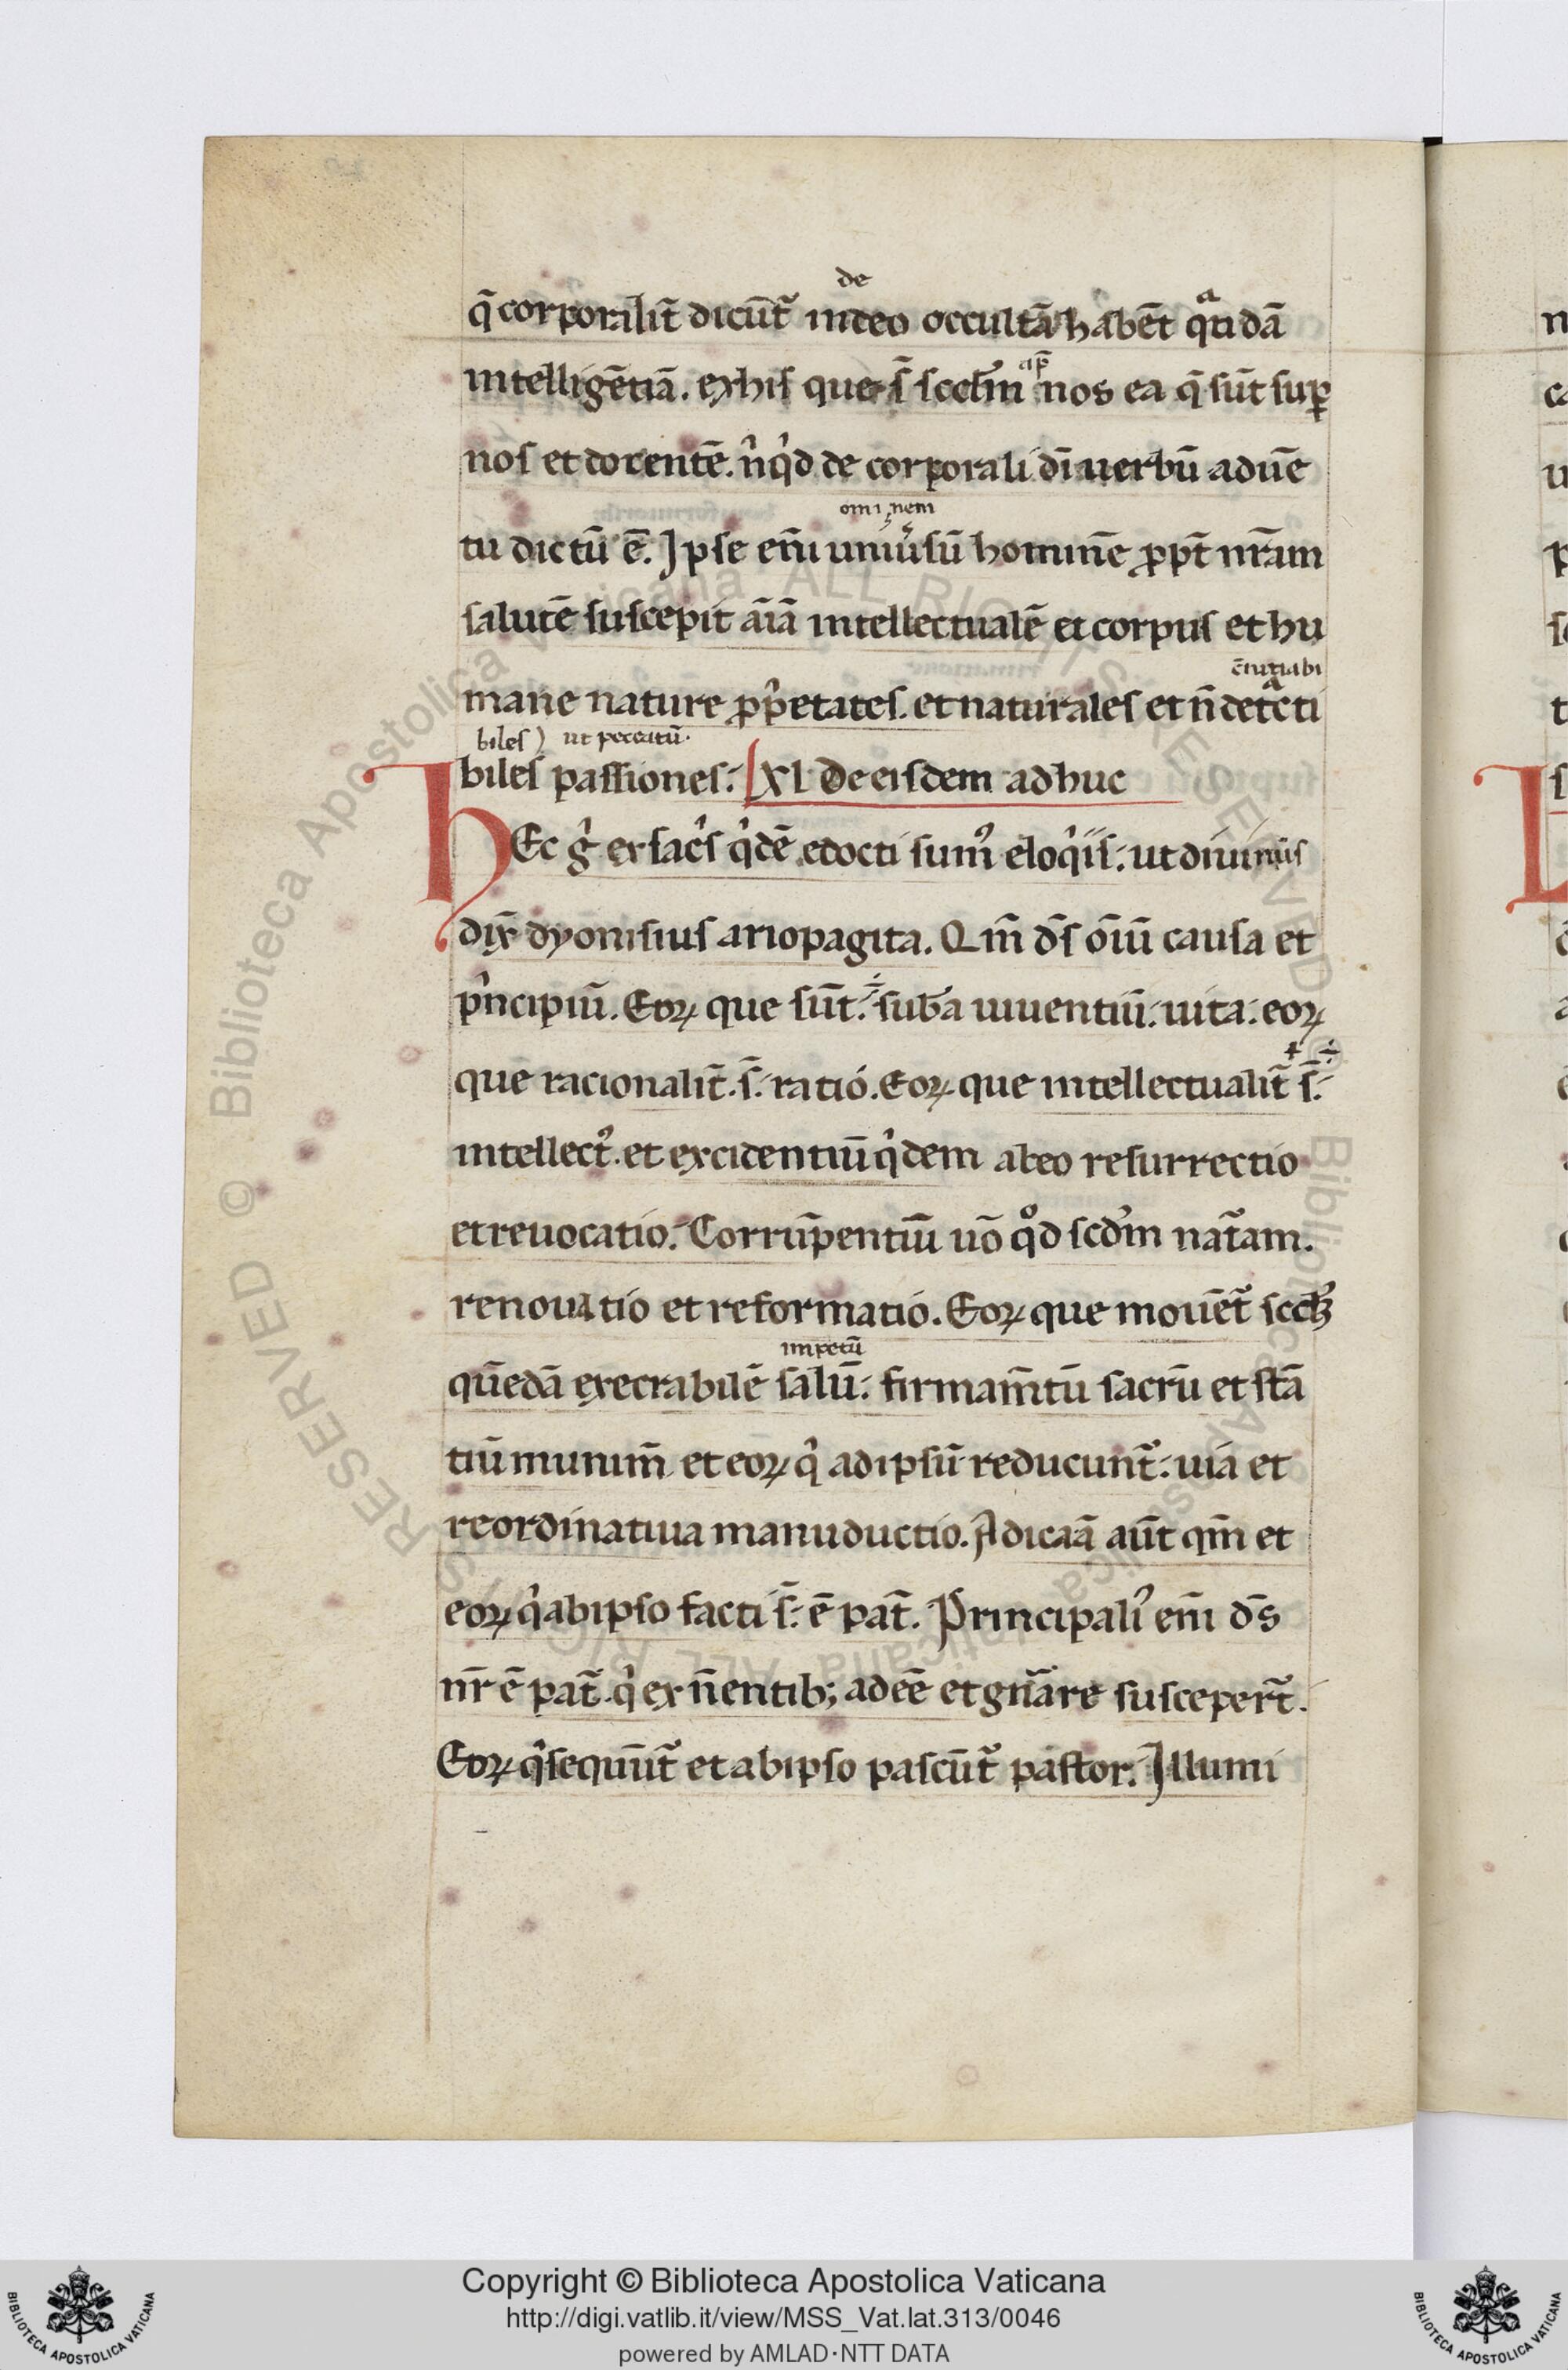 de
q̄ corporalit̄ dicūt᷑ indeo occultā habēt qᵃndā
intelligētiā. exhis que s̄ scdm̄ nos ea q̄ sūt suꝑ
ap̄
nos et docentē. n̄ qͥd de corporali dī uerbū aduē
omi nem
tu dictū ē. Ipse em̄ uniu͛sū hominē ꝓpt̄ nr̄am
salutē suscepit āīā intellectualē et corpus et hu
mane nature ꝓpͥetates. et naturales et n̄ detᵃcti
biles ) ut peccatū.
biles passiones. XL De eisdem adhuc
HEc gͥ ex sacͥs qͥdē edocti sumꝰ eloqͥis. ut diuinus
dix̄ dyonisius ariopagita. Qm̄ ds̄ oīū causa et
pͥncipiū. Eoꝝ que sūt. suba uiuentiū. uita. eoꝝ
que racionalit̄. s̄. ratio. Eoꝝ que intellectualit̄ s̄.
intellectꝰ. et excidentiū qͥdem abeo resurrectio
et reuocatio. Corrūpentiū uō qͦd scdm̄ nat᷑am.
renouatio et reformatio. Eoꝝ que mouēt᷑ scdm̄
impetū
quēdā execrabilē salū. firmam̄tū sacrū et stā
tiū munim̄ et eoꝝ qͥ adipsū reducunt᷑. uia et
reordinatiua manuductio. Adiciā aūt qm̄ et
eoꝝ qͥ abipso facti s̄. ē pat̄. Principaliꝰ em̄ ds̄
nr̄ ē pat̄. qͥ ex n̄entib; adeē et gn̄are suscepert̄.
Eoꝝ qͥ sequūt᷑ et abipso pascūt᷑ pastor. Illumi
Copyright © Biblioteca Apostolica Vaticana
http://digi.vatlib.it/view/MSS_Vat.lat.313/0046
powered by AMLAD·NTT DATA